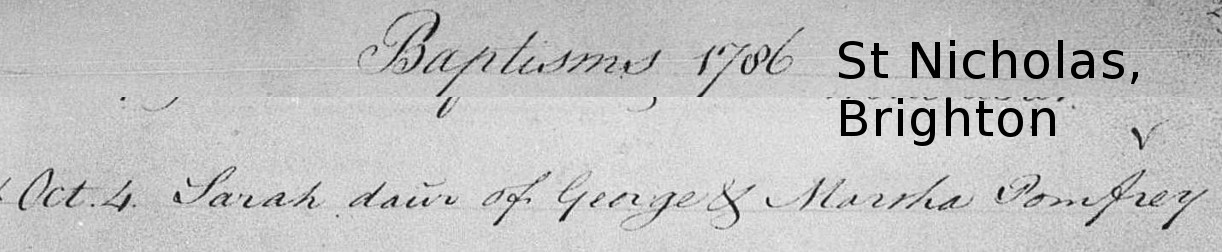 Baptisms 1786
St Nicholas,
Brighton
Oct. 4. Sarah daur of George & Marsha Pomfrey